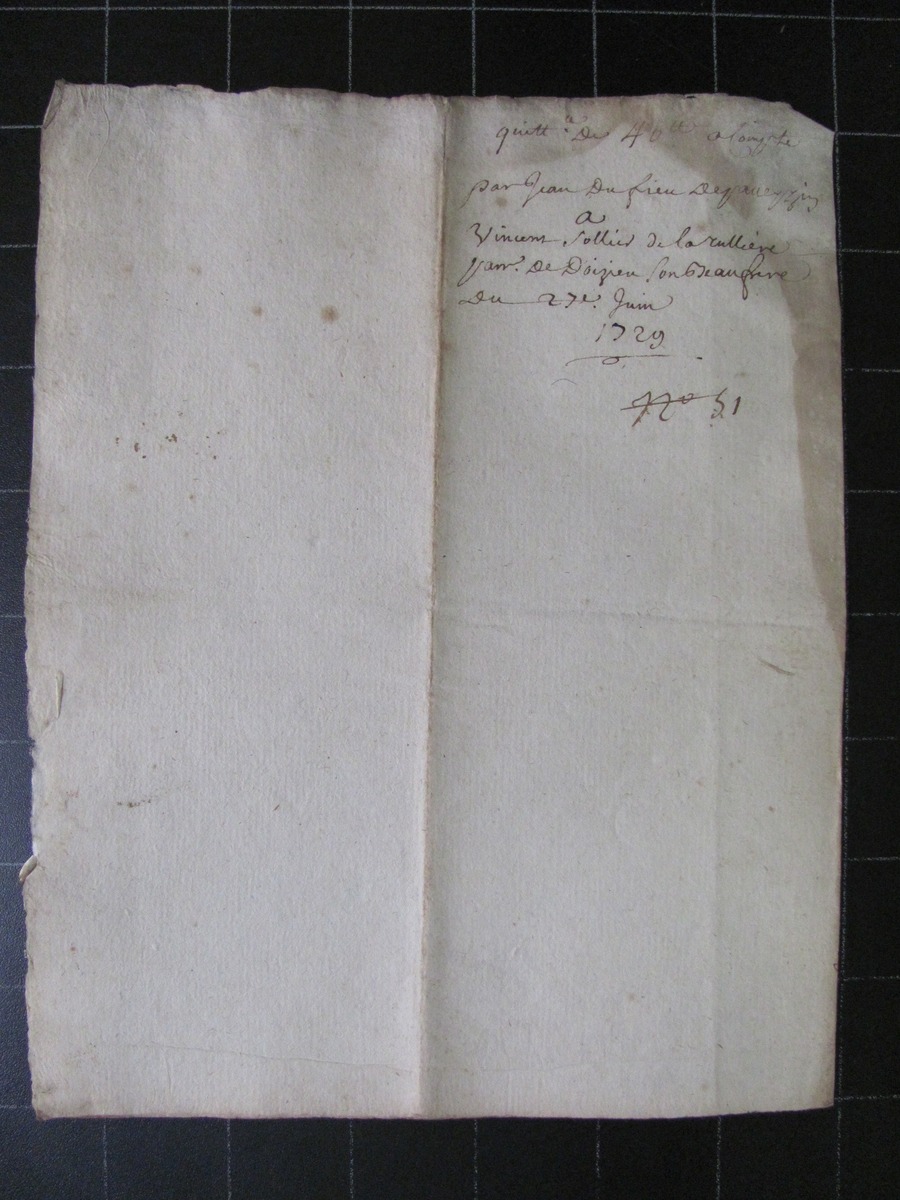 quitt.ce De 40tt a Compte
par Jean Du fieu De
a
Vincent Sollier de la rullière
parr.e De Doizieu son Beaufrere
Du 27e. Juin
1729
No 51